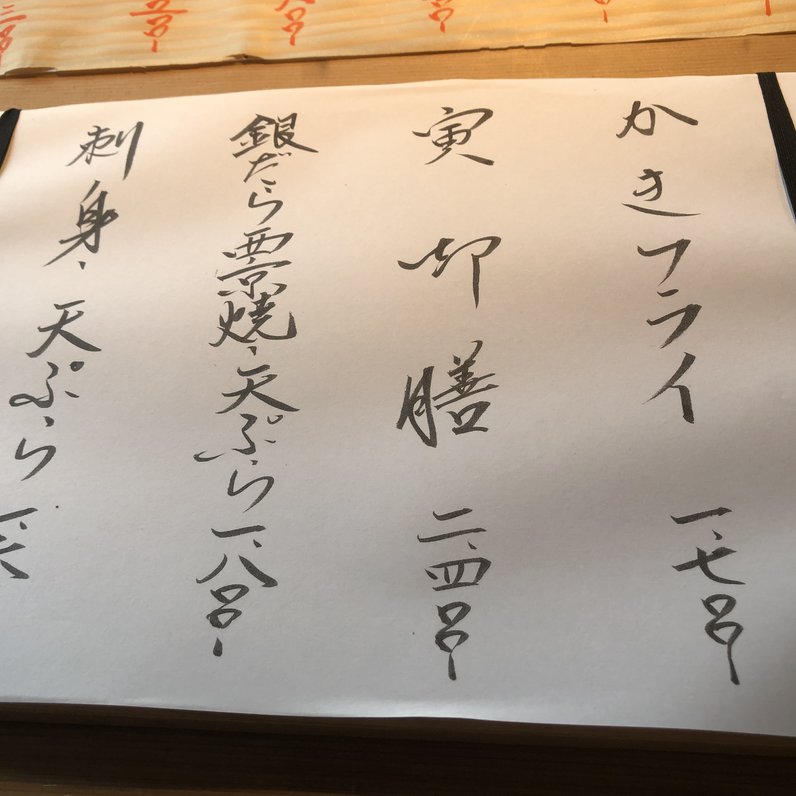 かきフライ 一、七〇〇-
寅卯膳 二、四〇〇-
銀だら西京焼、天ぷら 一、八〇〇-
刺身、天ぷら 一、六